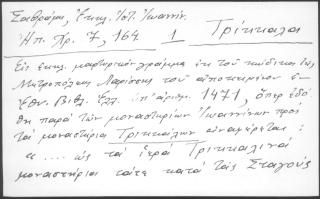 Σαθρώμ, Ἐκκλ. Ἱστ. Ἰωαννίν.
Ἠπ. Χρ. 7, 164 1 Τρίκκαλαι
Εἰς ἐκκλ. μαρτυρικὸν γράμμα ἐκ τοῦ κώδικος τῆς
Μητροπόλεως Λαρίσσης τοῦ ἀποκειμένου ἐν
Ἐθν. Βιβλ. Ἑλλ. ὑπ' ἀριθμ. 1471, ὅπερ ἐδό
θη παρὰ τῶν μοναστηρίων Ἰωαννίνων πρὸς
τὰ μοναστήρια Τρικκάλων ἀναφέρεται :
« .... ὡς τὰ ἱερὰ Τρικκαλινὰ
μοναστήρια τά τε κατὰ τοὺς Σταγοὺς